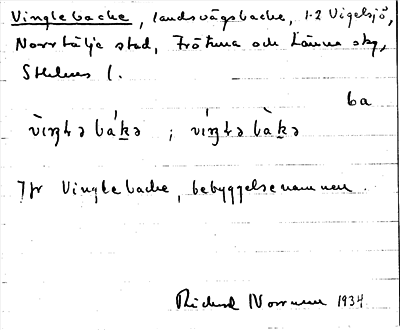 Vinglebacke, landsvägsbacke, 1-2 Vigelsjö,
Norrtälje stad, Frötuna och Länna skg,
Sthlms l.
ba
vìŋlə bákə ; víŋlə bàkə
Jfr Vinglebacke, bebyggelsenamnen.
Rickard Norrman 1934